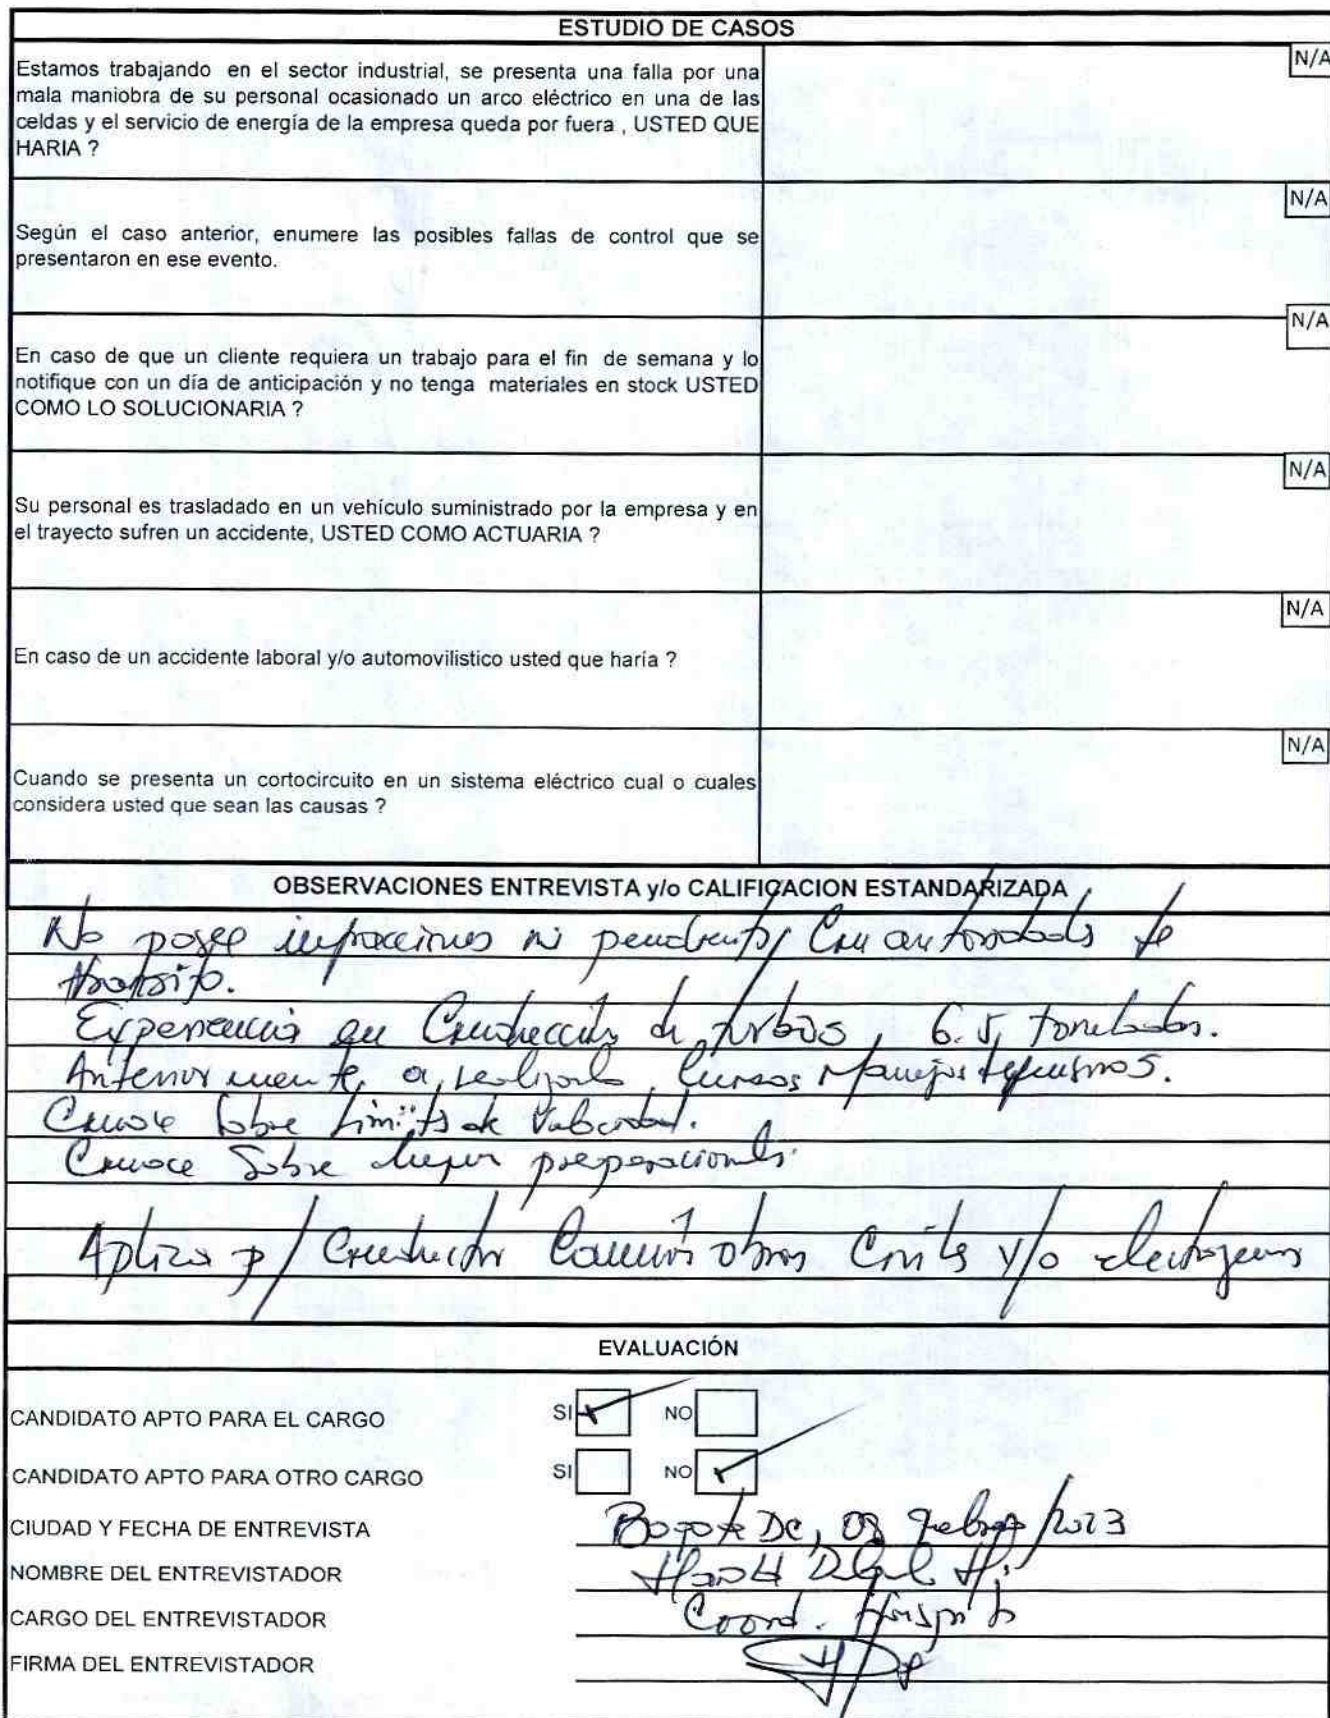 ESTUDIO DE CASOS
Estamos trabajando en el sector industrial, se presenta una falla por una
N/A
mala maniobra de su personal ocasionado un arco eléctrico en una de las
celdas y el servicio de energía de la empresa queda por fuera , USTED QUE
HARIA ?
N/A
Según el caso anterior, enumere las posibles fallas de control que se
presentaron en ese evento.
N/A
En caso de que un cliente requiera un trabajo para el fin de semana y lo
notifique con un día de anticipación y no tenga materiales en stock USTED
COMO LO SOLUCIONARIA ?
N/A
Su personal es trasladado en un vehículo suministrado por la empresa y en
el trayecto sufren un accidente, USTED COMO ACTUARIA ?
N/A
En caso de un accidente laboral y/o automovilistico usted que haría ?
N/A
Cuando se presenta un cortocircuito en un sistema eléctrico cual o cuales
considera usted que sean las causas ?
OBSERVACIONES ENTREVISTA y/o CALIFICACION ESTANDARIZADA
No posee infracciones ni pendientes con autoridades de
transito.
Experiencia en Conducción de turbos, 6.5 toneladas.
Anteriormente a realizado Cursos Manejo defensivo.
Conoce sobre limites de Velocidad.
Conoce Sobre preoperacionales.
Aplica p/ Conductor Camión obras Civiles y/o
EVALUACIÓN
CANDIDATO APTO PARA EL CARGO SI NO
CANDIDATO APTO PARA OTRO CARGO SI NO
CIUDAD Y FECHA DE ENTREVISTA Bogota DC, febrero/2023
NOMBRE DEL ENTREVISTADOR
CARGO DEL ENTREVISTADOR Coord.
FIRMA DEL ENTREVISTADOR